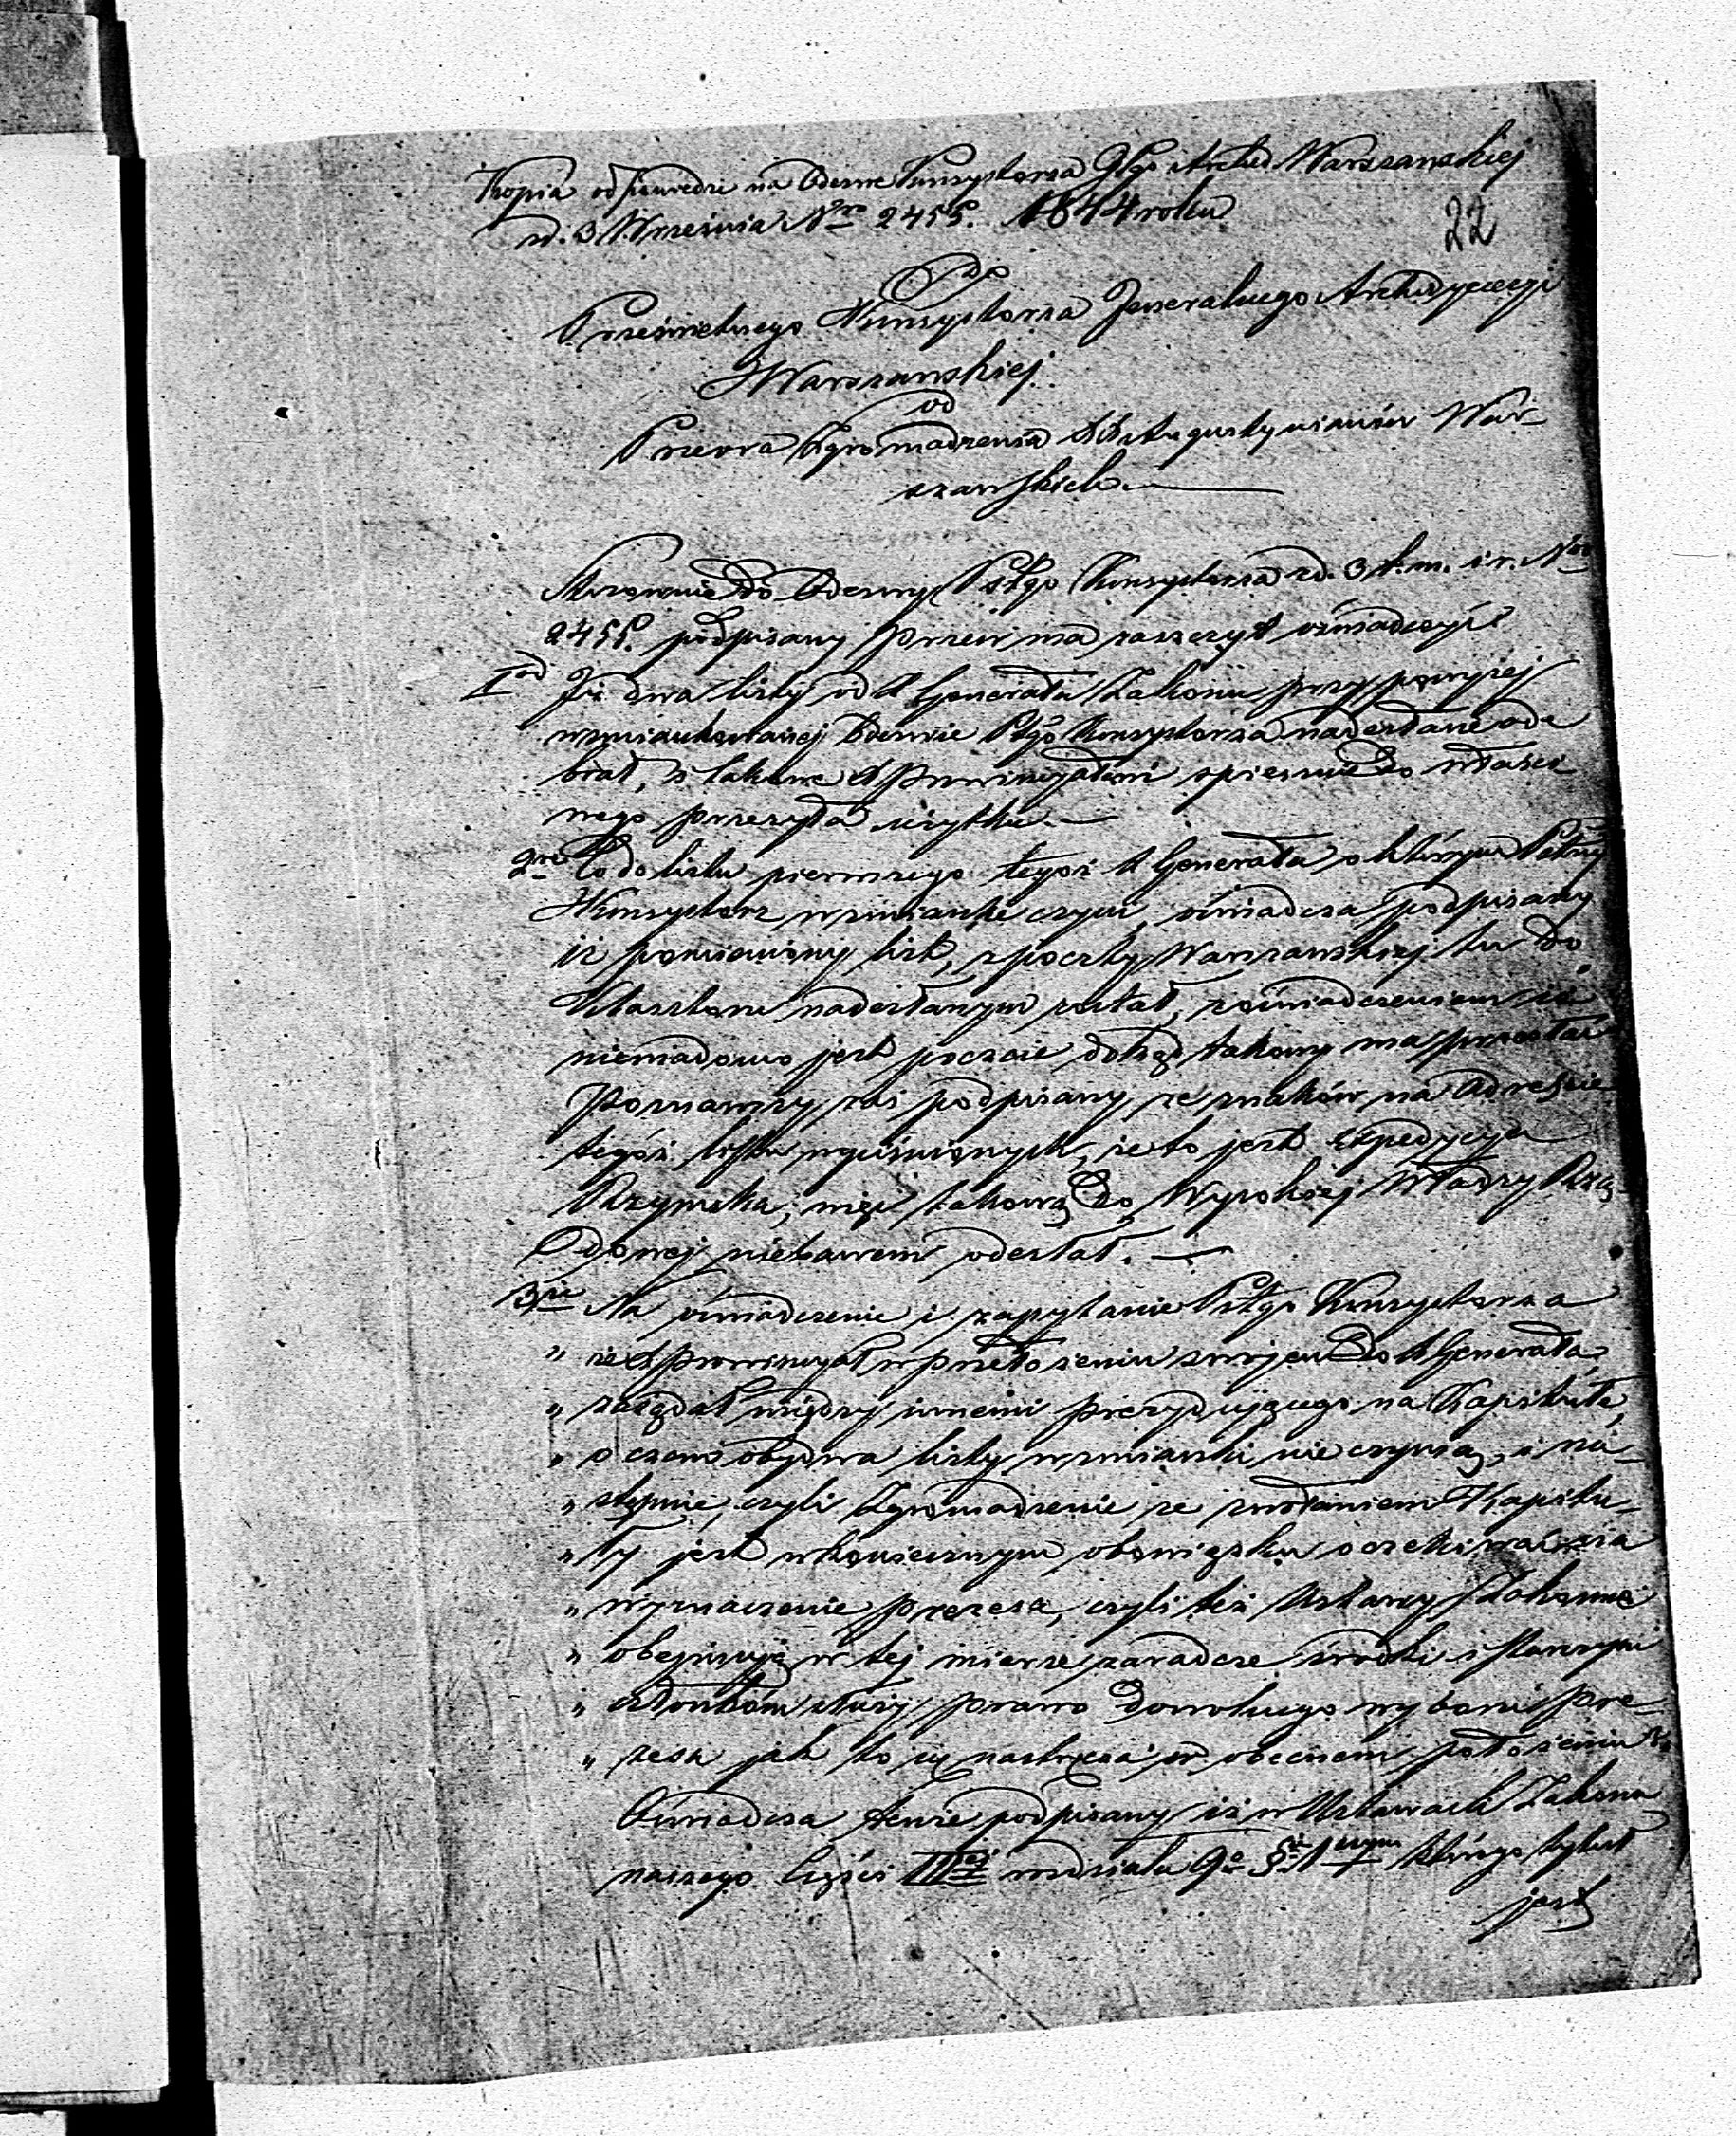 Kopia odpowiedzi na Odezwę Konsystorza Glgo Archid. Warszawskiej
zd. 3 Września Nro 2455. 1844 roku
22
Do
Prześwietnego Konsystorza Jeneralnego Archidyecezyi
Warszawskiej.
od
Przeora Zgromadzenia XX Augustyanów War-
szawskich.
Stosownie do Odezwy Pstgo Konsystorza zd. 3 b. m. i r. Nro
2455. podpisany przeor ma zaszczyt oświadczyć
1od Iż dwa listy od X Generała Zakonu przy powyżej
wzmiankowanej Odezwie Pstgo Konsystorza nadesłane ode
brał, i takowe X Prowincyałowi spiesznie do właści
wego przesyła użytku.
2re Co do listu pierwszego tegoż X Generała o którym Pstny
Konsystorz wzmiankę czyni, oświadcza podpisany
iż pomieniony list, z poczty Warszawskiej tu do
Klasztoru nadesłanym został, z oświadczeniem iż
niewiadomo jest poczcie dokąd takowy ma przesłać
Poznawszy zaś podpisany ze znaków na adresie
tegóż listu wyciśnionych, że to jest expedycya
Rzymska; więc takową do Wysokiej Władzy Rzą
dowej niebawem odesłał.
3cie Na oświadczenie i zapytanie Pstgo Konsystorza
" że X Prowincyał w przełożeniu swojem do X Generała
" zażądał między innemi prezydującego na Kapitułę,
" o czem obydwa listy wzmianki nie czynią, i na-
" stępnie, czyli Zgromadzenie ze zwołaniem Kapitu-
" ły jest w koniecznym obowiązku oczekiwania
" wyznaczenie prezesa, czyli też Ustawy Zakonne
" obejmują w tej mierze zaradcze środki i starszym
" członkom służy prawo dowolnego wyboru pre-
" zesa jak to się nastręcza w obecnem położeniu "
Oświadcza tenże podpisany iż w Ustawach Zakonu
naszego Części IIIej rozdziału 9o § 1wszym którego tytuł
jest